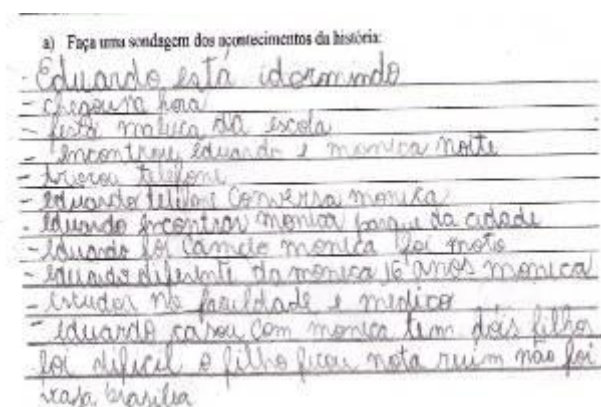 a) Faça uma sondagem dos acontecimentos da história:
- Eduardo está idormindo
- chegou na hora
- festa maluca da escola
- encontrou eduardo e monica noite
- telefone
- eduardo telefone conversa monica
- eduardo encontrar monica parque da cidade
- eduardo foi camelo monica foi moto
- eduardo diferente da monica 16 anos monica
- estudar na faculdade e medico
- eduardo casou com monica tem dois filhos
foi dificil o filho ficou nota ruim não foi
brasilia